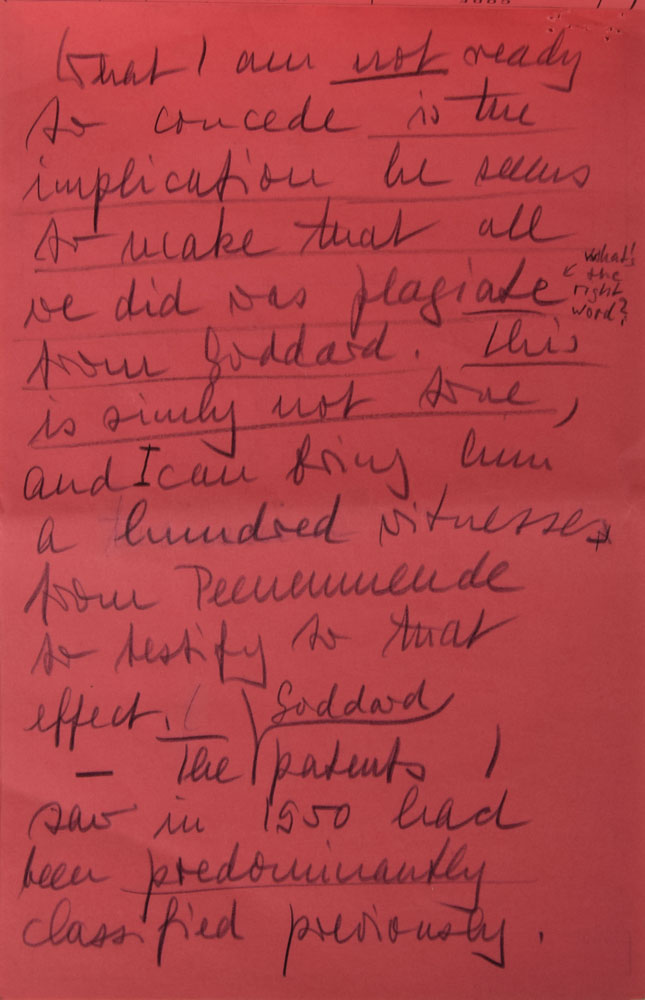 What I am not ready
to concede is the
implication he seems
to make that all
we did was plagiate
what's
the
right
word?
from Goddard. This
is simly not true,
and I can bring him
a hundred witnesses
from Peenemuende
to testify to that
effect.
Goddard
– The patents I
saw in 1950 had
been predominantly
classified previously.